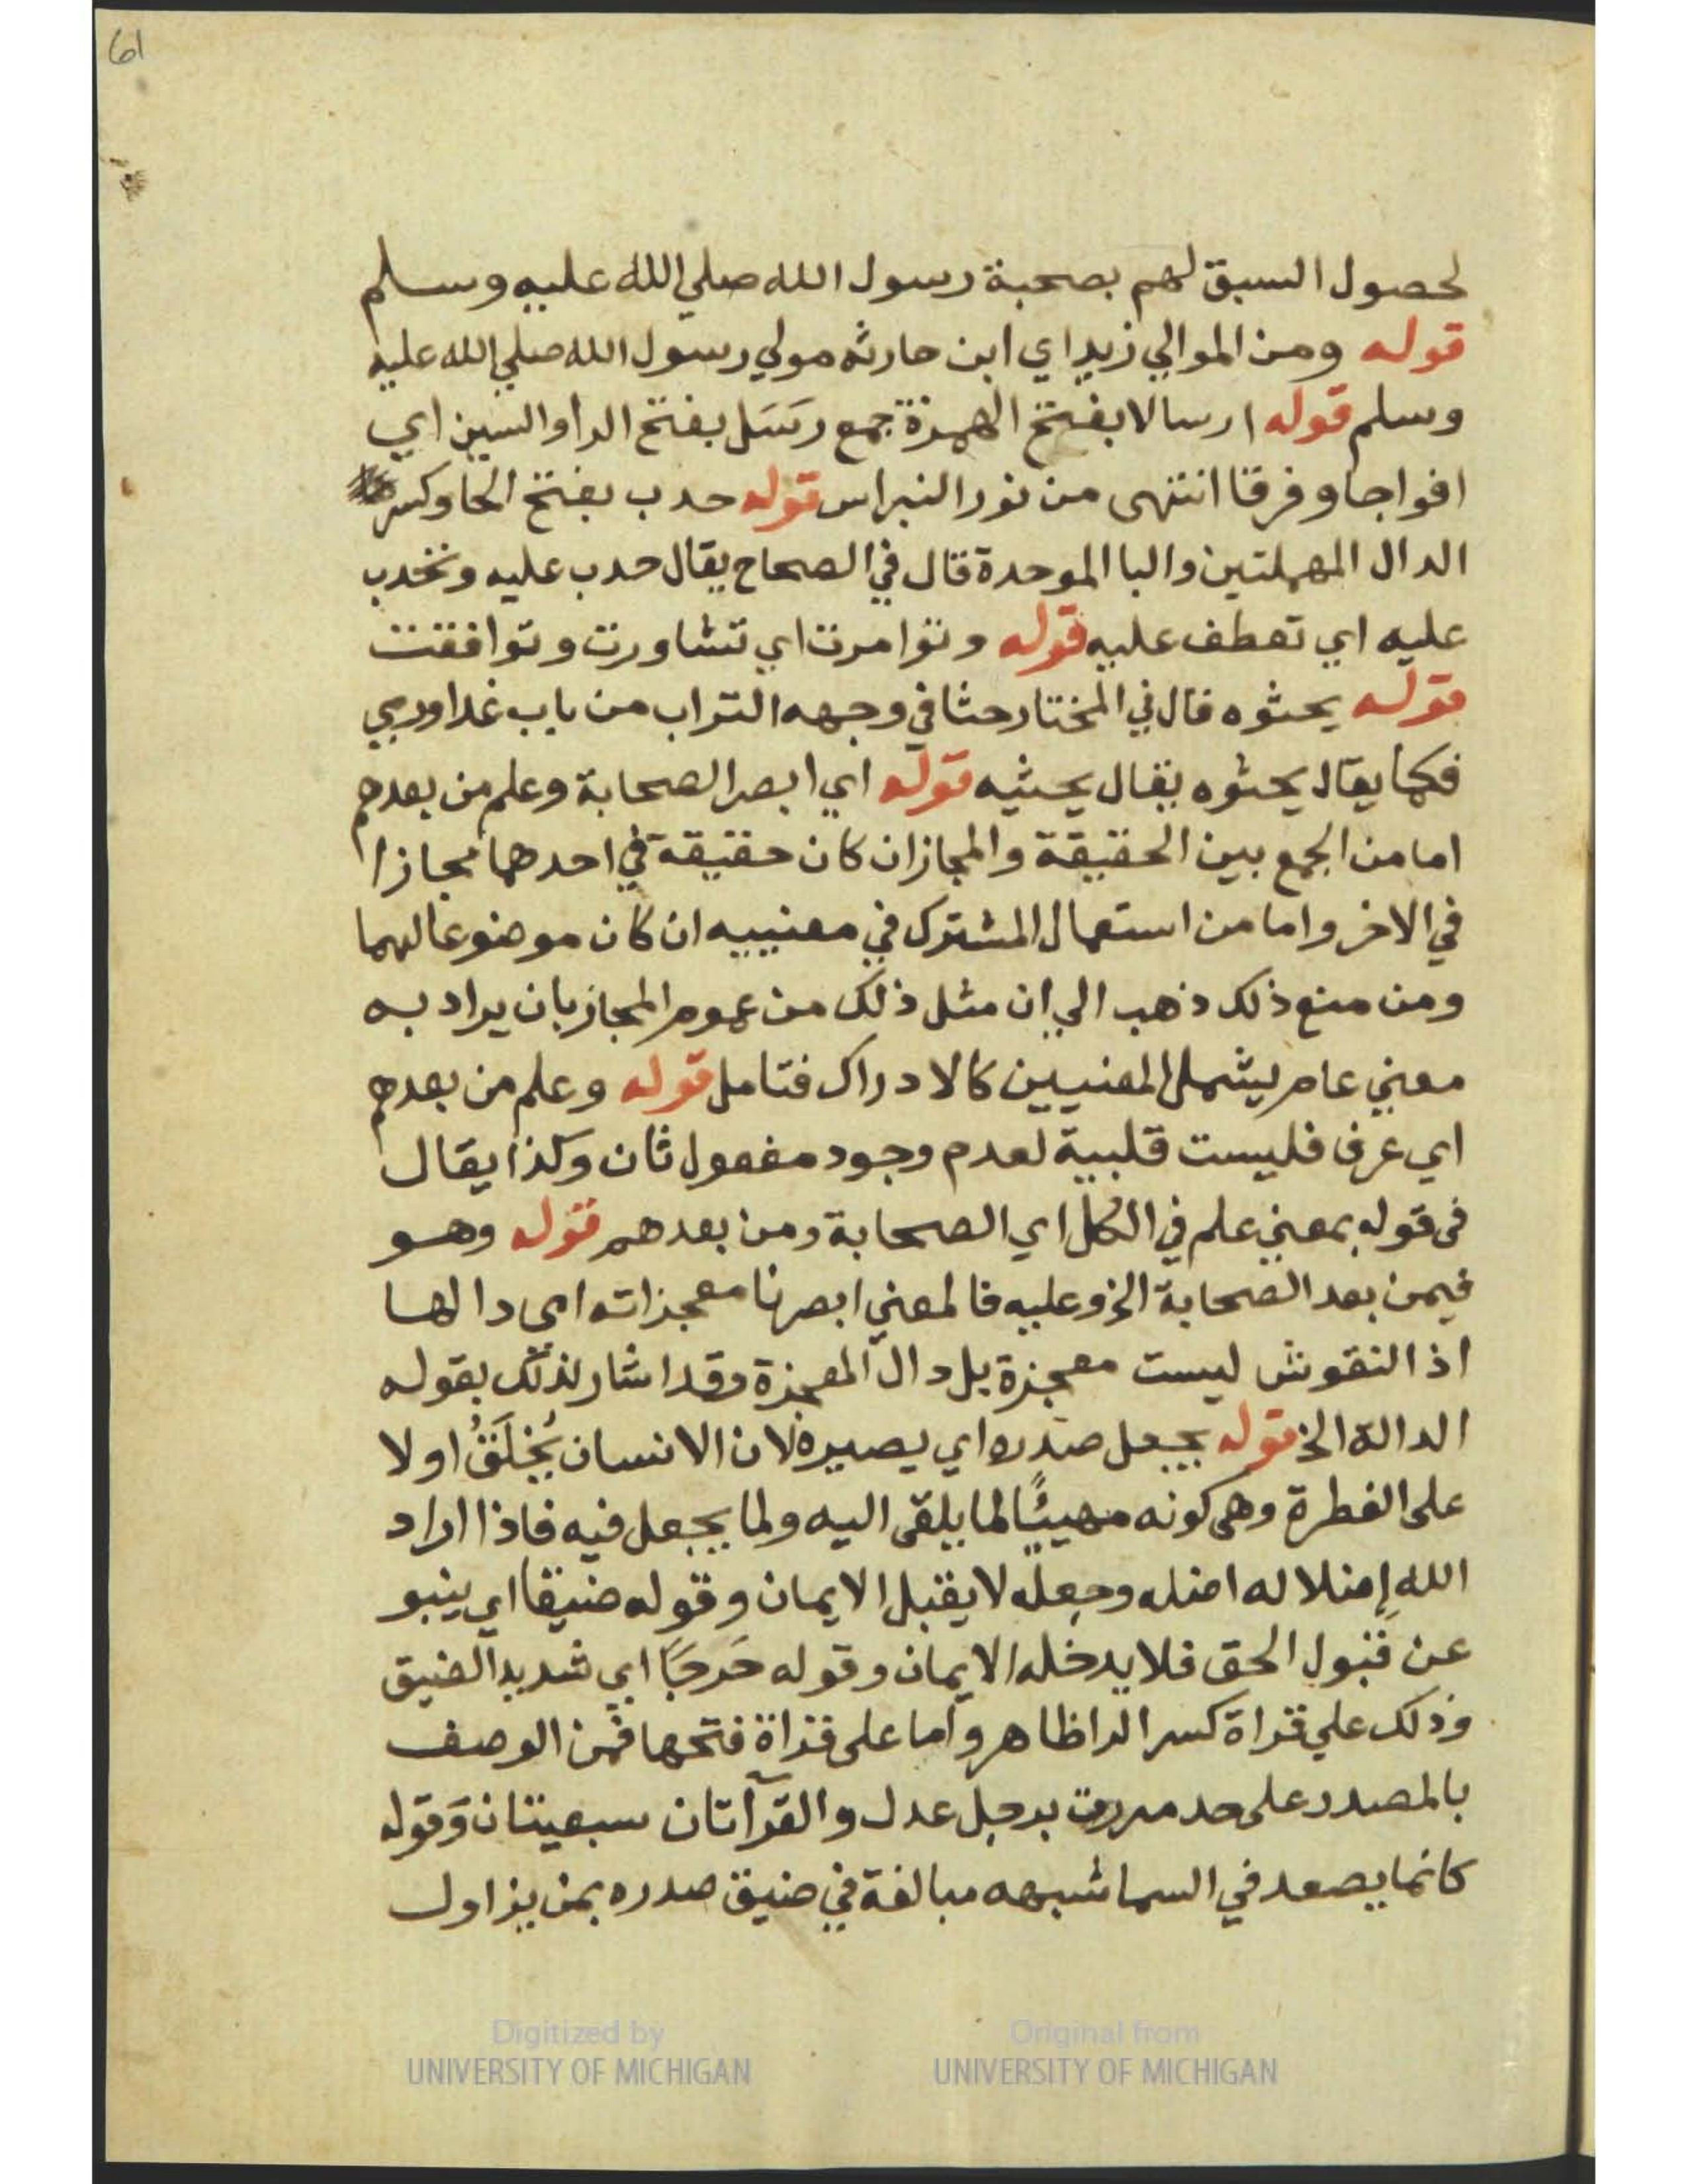 61
لحصول السبق لهم بصحبة رسول الله صلي الله عليه وسلم
قوله ومن الموالي زيد اي ابن حارثه مولي رسول الله صلي الله عليه
وسلم قوله ارسالا بفتح الهمزة جمع رَسَل بفتح الرا والسين اي
افواجا وفرقا انتهى من نور النبراس قوله حدب بفتح الحا وكسر
الدال المهملتين والبا الموحدة قال في الصحاح يقال حدب عليه وتحدب
عليه اي تعطف عليه قوله وتوامرت اي تشاورت وتوافقت
قوله يحثوه قال في المختار حثا في وجهه التراب من باب غدا ورمي
فكما يقال يحثوه يقال يحثيه قوله اي ابصر الصحابة وعلم من بعدهم
اما من الجمع بين الحقيقة والمجاز ان كان حقيقة في احدهما مجازا
في الاخر واما من استعمال المشترك في معنييه ان كان موضوعا لهما
ومن منع ذلك ذهب الي ان مثل ذلك من عموم المجاز بان يراد به
معني عام يشمل المعنيين كالادراك فتامل قوله وعلم من بعدهم
اي عرف فليست قلبية لعدم وجود مفعول ثان وكذا يقال
فى قوله بمعني علم في الكل اي الصحابة ومن بعدهم قوله وهو
فيمن بعد الصحابة الخ وعليه فالمعني ابصرنا معجزاته اى دالها
اذ النقوش ليست معجزة بل دال المعجزة وقد اشار لذلك بقوله
الدالة الخ قوله يجعل صدره اي يصيره لان الانسان يُخلَقُ اولا
على الفطرة وهى كونه مهيئًا لما يلقى اليه ولما يجعل فيه فاذا اراد
الله إضلاله اضله وجعله لا يقبل الايمان وقوله ضيقا اي ينبو
عن قبول الحق فلا يدخله الايمان وقوله حَرجًا اي شديد الضيق
وذلك علي قراة كسر الرا ظاهر واما على قراة فتحها فمن الوصف
بالمصدر على حد مررت برجل عدل والقرآتان سبعيتان وقوله
كانما يصعد في السما شبهه مبالغة في ضيق صدره بمن يزاول
Digitized by
UNIVERSITY OF MICHIGAN
Original from
UNIVERSITY OF MICHIGAN